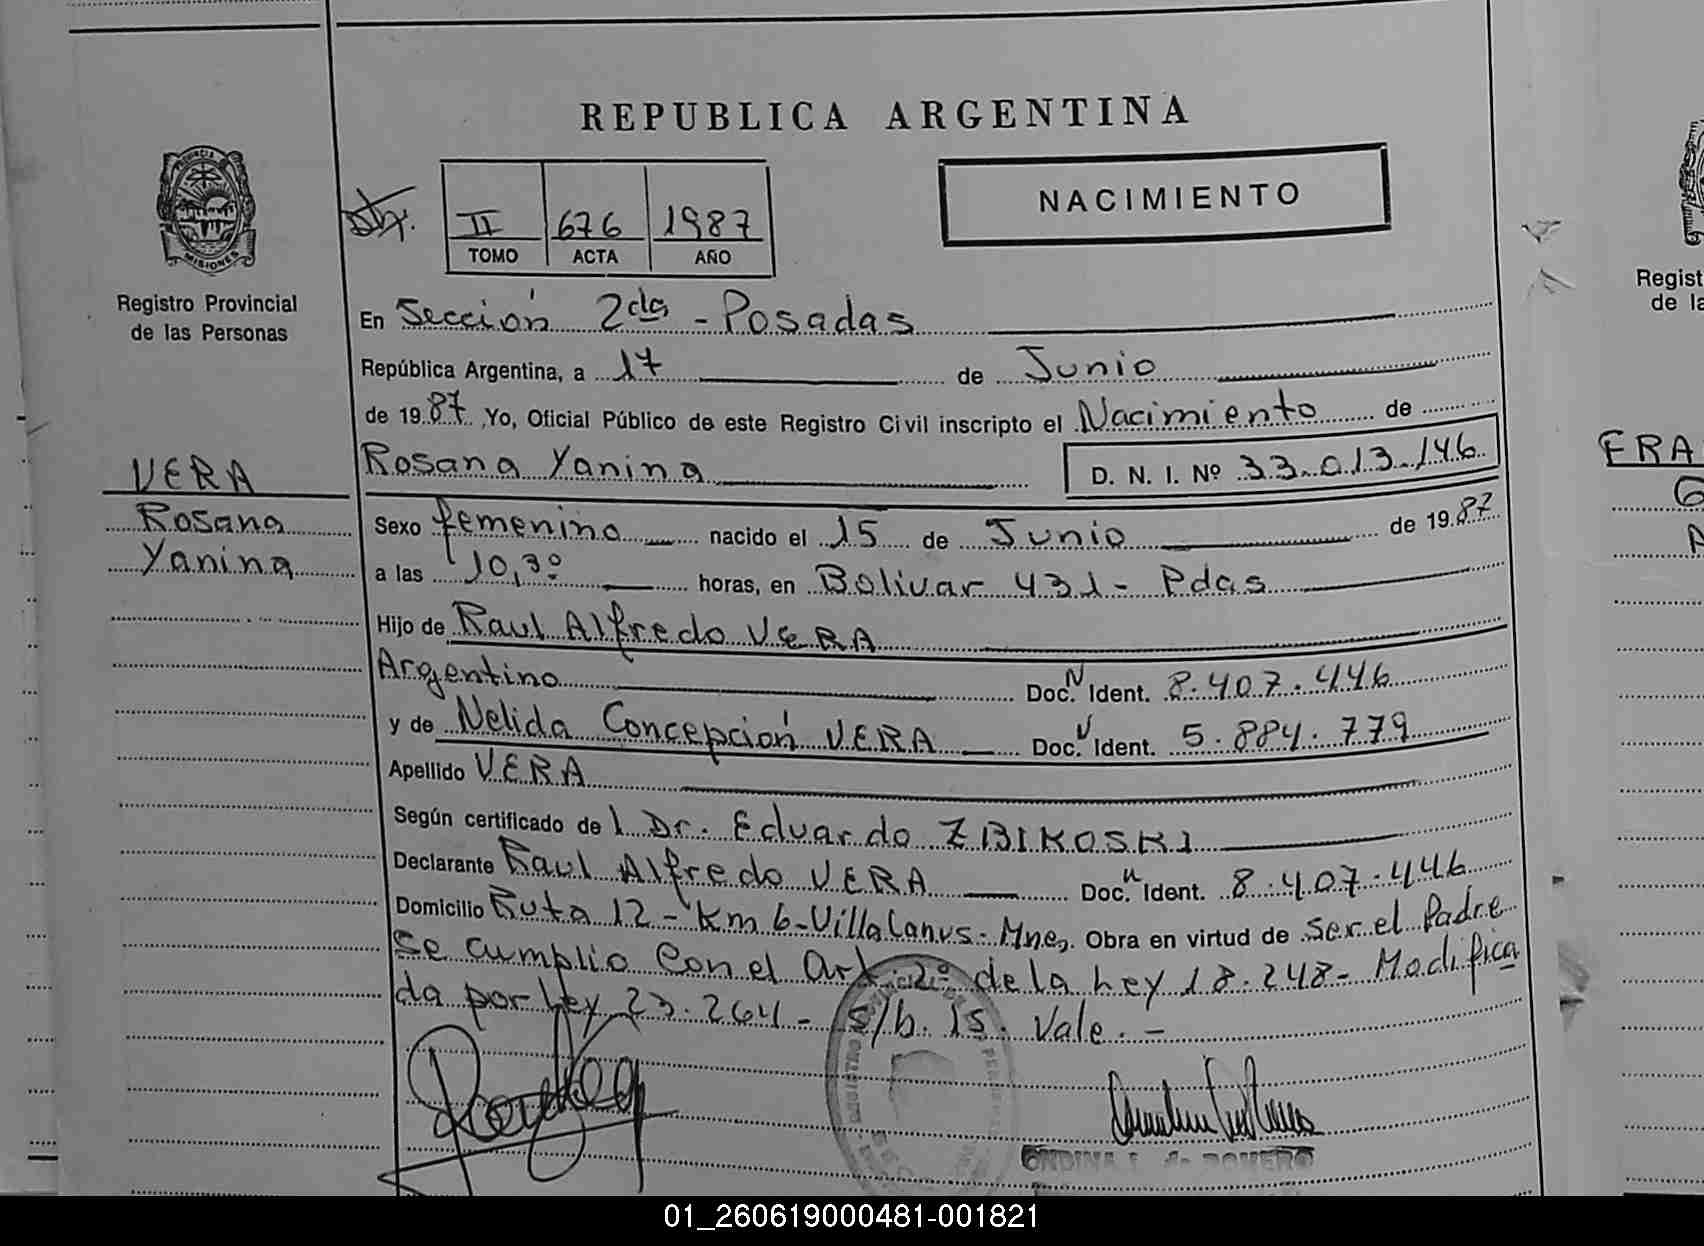 REPUBLICA ARGENTINA
PROVINCIA
MISIONES
Registro Provincial
de las Personas
II 676 1987
TOMO ACTA AÑO
NACIMIENTO
En Sección 2da - Posadas
República Argentina, a 17 de Junio
de 1987. Yo, Oficial Público de este Registro Civil inscripto el Nacimiento de
Rosana Yanina D. N. I. Nº 33.013.146
VERA
Rosana
Yanina
Sexo femenino nacido el 15 de Junio de 1987
a las 10,30 horas, en Bolivar 431 - Pdas
Hijo de Raul Alfredo VERA
Argentino Doc. N Ident. 8.407.446
y de Nelida Concepción VERA Doc. Ident. 5.884.779
Apellido VERA
Según certificado de l Dr. Eduardo ZBIKOSKI
Declarante Raul Alfredo VERA Doc. Ident. 8.407.446
Domicilio Ruta 12 - Km 6 - Villa Lanus - Mnes. Obra en virtud de ser el Padre
Se cumplio con el Art. 2º de la Ley 18.248 - Modifica
da por Ley 23.264 - S/b. 15. Vale. -
ONDINA ROMERO
Regist
de la
FRA
01_260619000481-001821